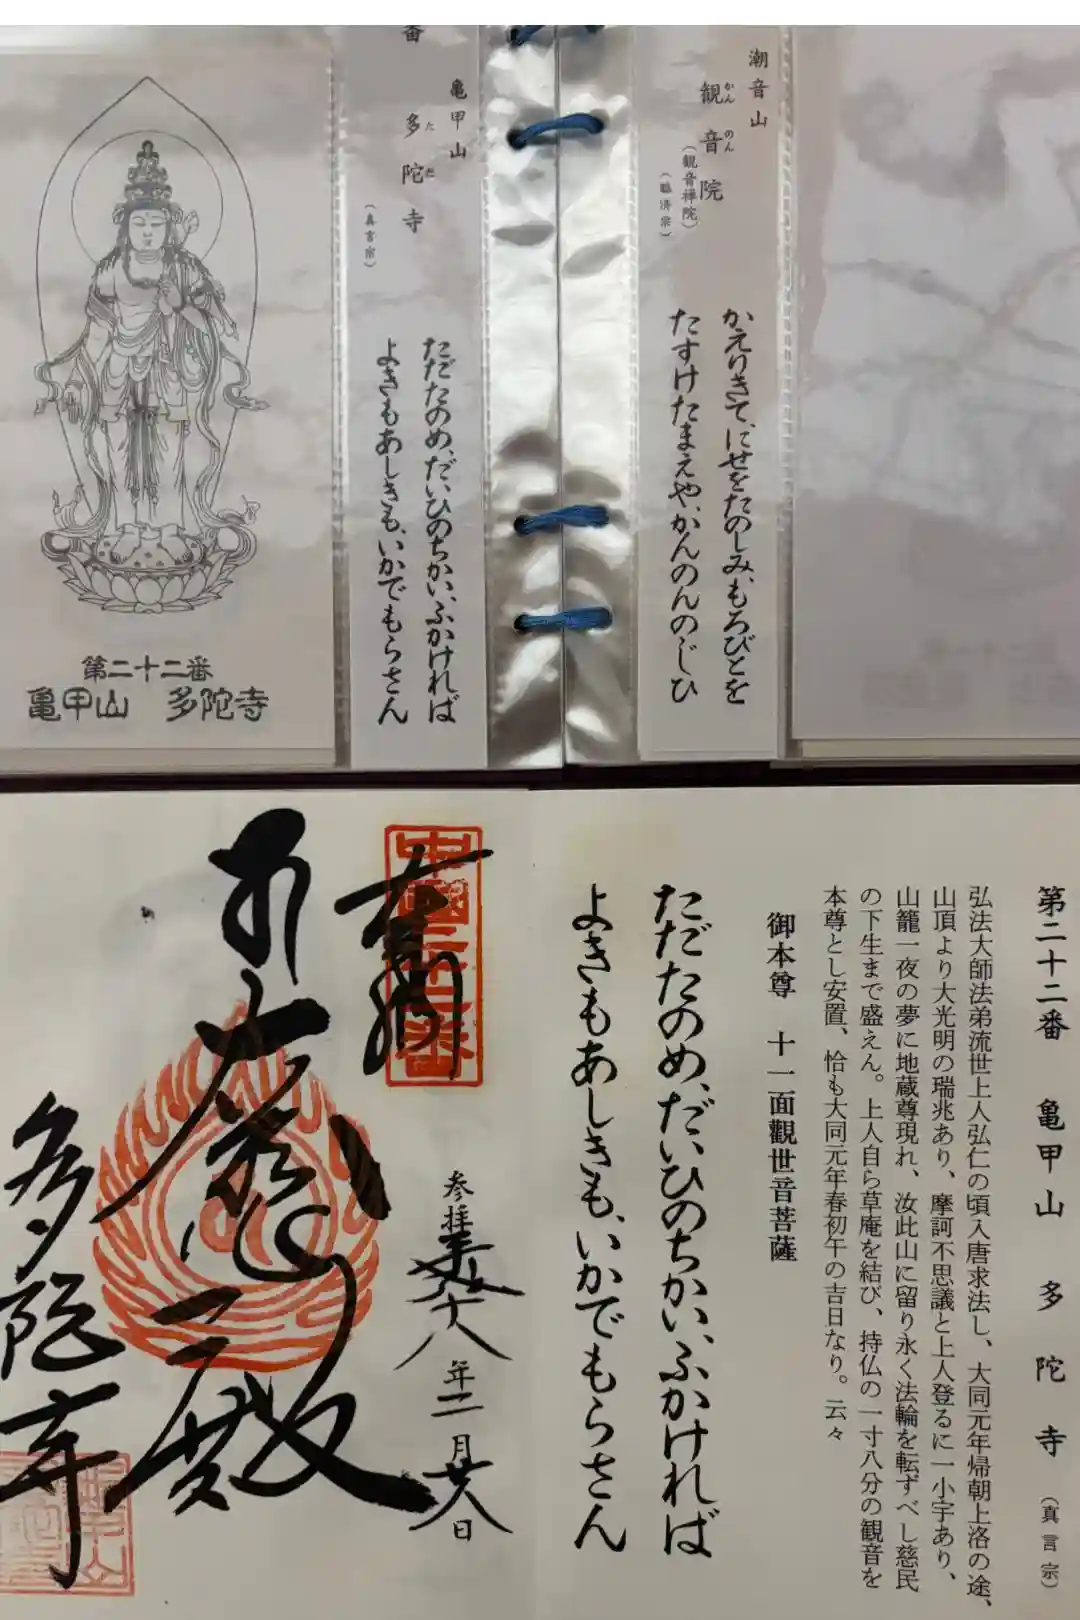 潮音山
観音院
かんのん
（観音禅院）
（臨済宗）
かえりきて、にせをたのしみ、もろびとを
たすけたまえや、かんのんのじひ
番
亀甲山
多陀寺
ただ
（真言宗）
ただたのめ、だいひのちかい、ふかければ
よきもあしきも、いかでもらさん
第二十二番
亀甲山　多陀寺
第二十二番　亀甲山　多陀寺（真言宗）
弘法大師法弟流世上人弘仁の頃入唐求法し、大同元年帰朝上洛の途、
山頂より大光明の瑞兆あり、摩訶不思議と上人登るに一小宇あり、
山籠一夜の夢に地蔵尊現れ、汝此山に留り永く法輪を転ずべし慈民
の下生まで盛えん。上人自ら草庵を結び、持仏の一寸八分の観音を
本尊とし安置、恰も大同元年春初午の吉日なり。云々
御本尊　十一面觀世音菩薩
ただたのめ、だいひのちかい、ふかければ
よきもあしきも、いかでもらさん
中國二十二番
奉納
参拝
年二月廿八日
多陀寺